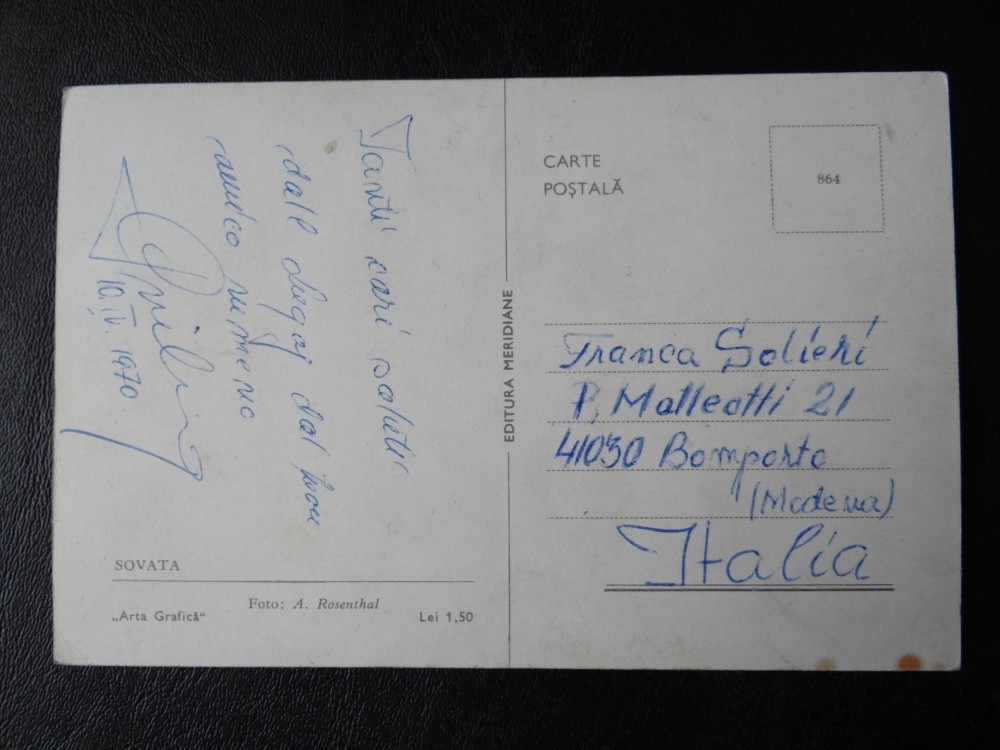 Tanti cari saluti
dall degaj dal
amico rumeno
10.IV.1970
SOVATA
Foto: A. Rosenthal
„Arta Grafică“
Lei 1,50
EDITURA MERIDIANE
CARTE
POȘTALĂ
864
Franca Solieri
P. Matteotti 21
41030 Bomporto
(Modena)
Italia